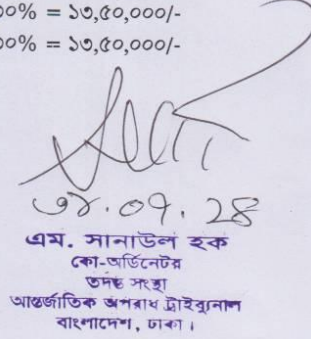 ০০% = ১৩,৫০,০০০/-
০০% = ১৩,৫০,০০০/-
০৭.
এম. সানাউল হক
কো-অর্ডিনেটর
তদন্ত সংস্থা
আন্তর্জাতিক অপরাধ ট্রাইব্যুনাল
বাংলাদেশ, ঢাকা।